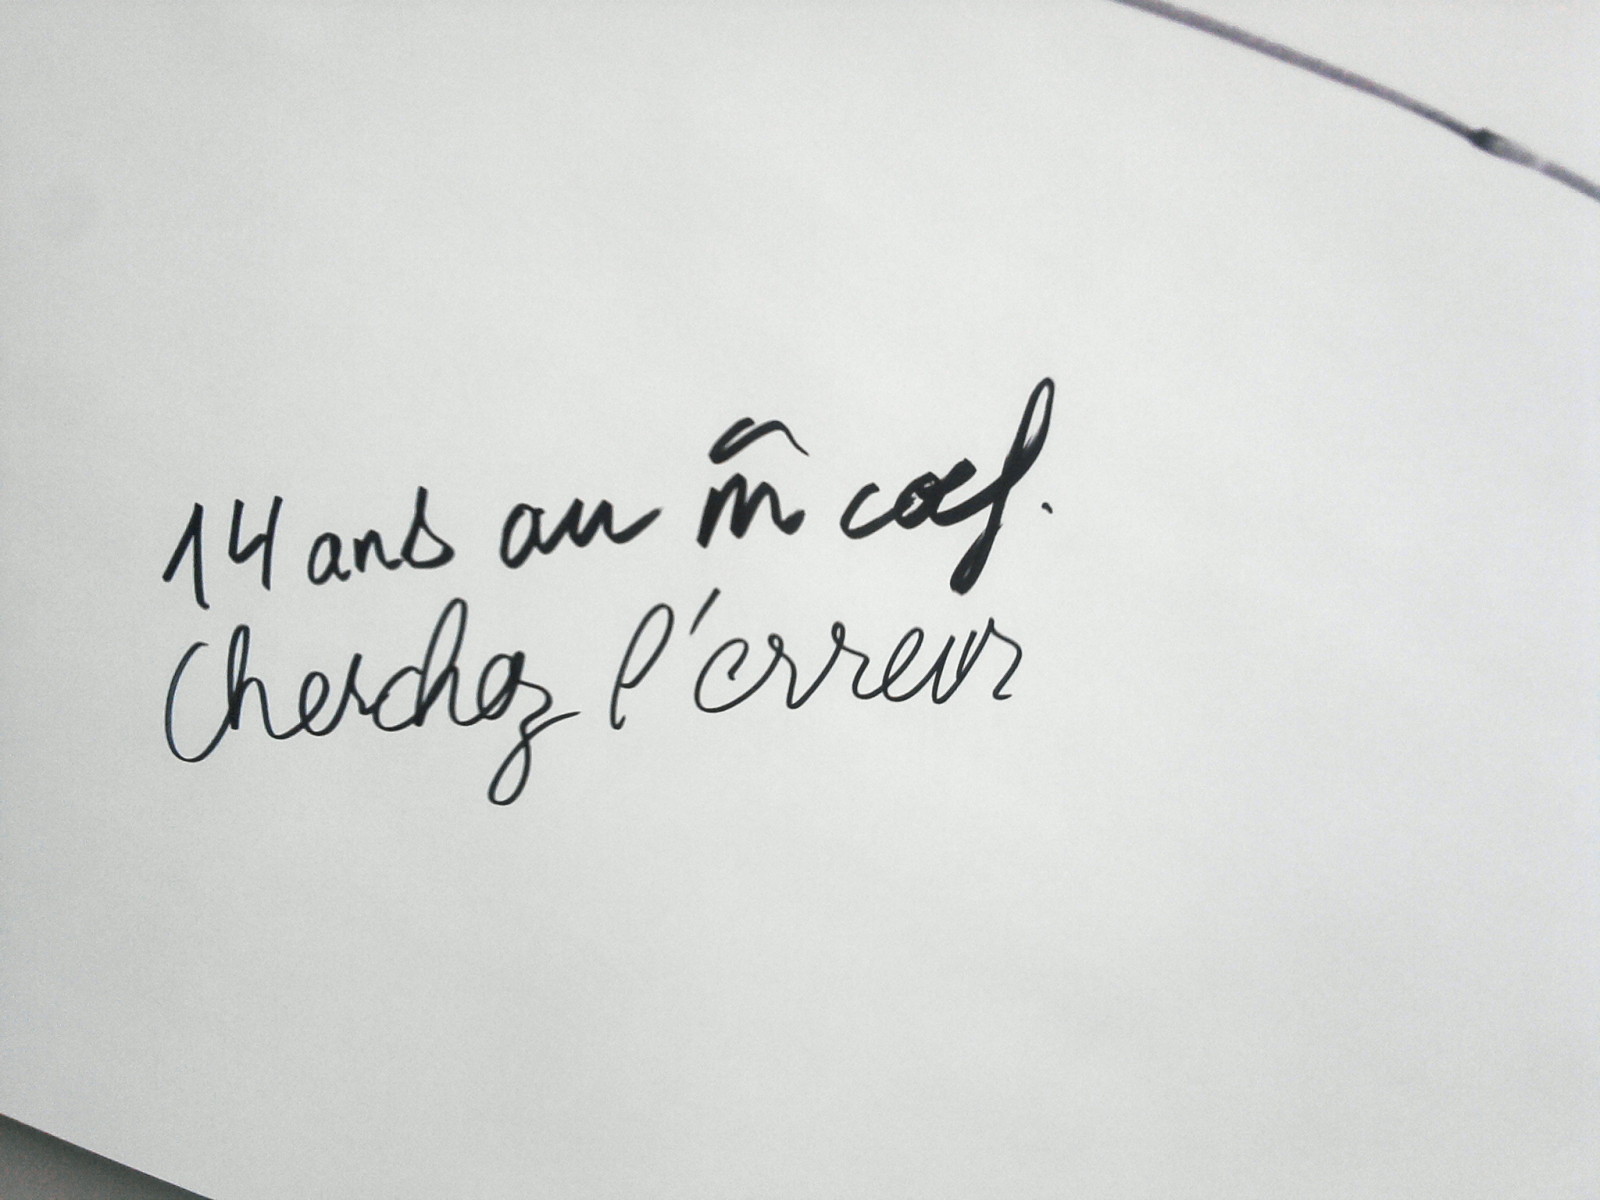 14 ans au m̂ coef.
Cherchez l'erreur